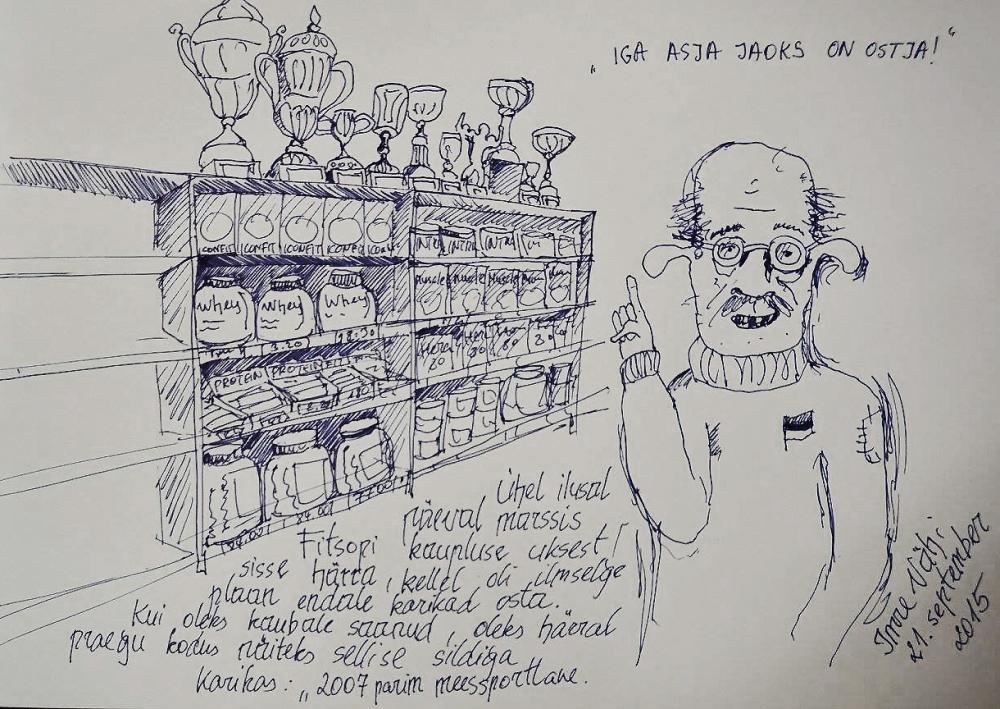 „IGA ASJA JAOKS ON OSTJA!“
ICONFIT ICONFIT ICONFIT ICONFIT
INTRA INTRA INTRA
Muscle Muscle Muscle
Whey Whey Whey
3.20 18.30
PROTEIN PROTEIN
Ühel ilusal
päeval marssis
Fitsopi kaupluse uksest
sisse härra, kellel oli ilmselge
plaan endale karikad osta.
Kui oleks kaubale saanud, oleks härral
praegu kodus näiteks sellise sildiga
karikas: „2007 parim meessportlane.
21. september
2015